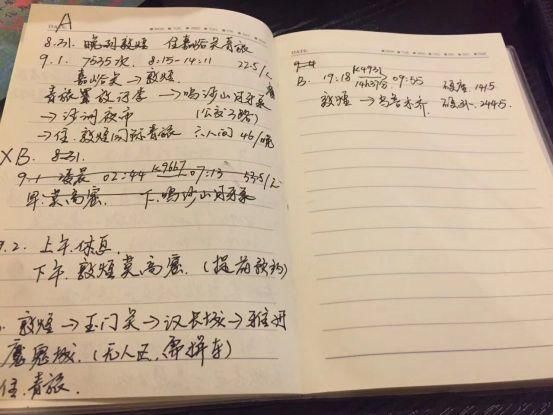 A
8.31. 晚到敦煌 住嘉峪关青旅
9.1. 7535次 8:15-14:11 22.5/人
嘉峪关→敦煌
青旅置放行李→鸣沙山月牙泉
→沙洲夜市 (公交3路)
→住.敦煌国际青旅 六人间 46/晚
XB. 8.31.
9.1 凌晨 02:44 K9667 07:13 53.5/人
早:莫高窟. 下.鸣沙山月牙泉
9.2. 上午休息.
下午.敦煌莫高窟.(提前预约)
敦煌→玉门关→汉长城→雅丹
魔鬼城.(无人区.需拼车)
住.青旅.
DATE
9.4
B. 19:18 K4931 09:55 硬座:141.5
14h37分
敦煌→乌鲁木齐. 硬卧.244.5